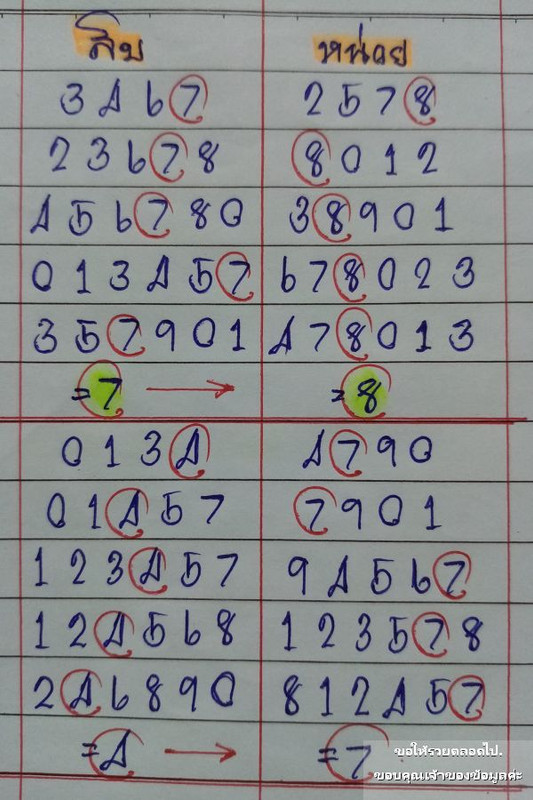 สิบ หน่วย
3 4 6 7 2 5 7 8
2 3 6 7 8 8 0 1 2
4 5 6 7 8 0 3 8 9 0 1
0 1 3 4 5 7 6 7 8 0 2 3
3 5 7 9 0 1 4 7 8 0 1 3
= 7 → = 8
0 1 3 4 4 7 9 0
0 1 4 5 7 7 9 0 1
1 2 3 4 5 7 9 4 5 6 7
1 2 4 5 6 8 1 2 3 5 7 8
2 4 6 8 9 0 8 1 2 4 5 7
= 4 → = 7
ขอให้รวยตลอดไป.
ขอบคุณเจ้าของข้อมูลค่ะ